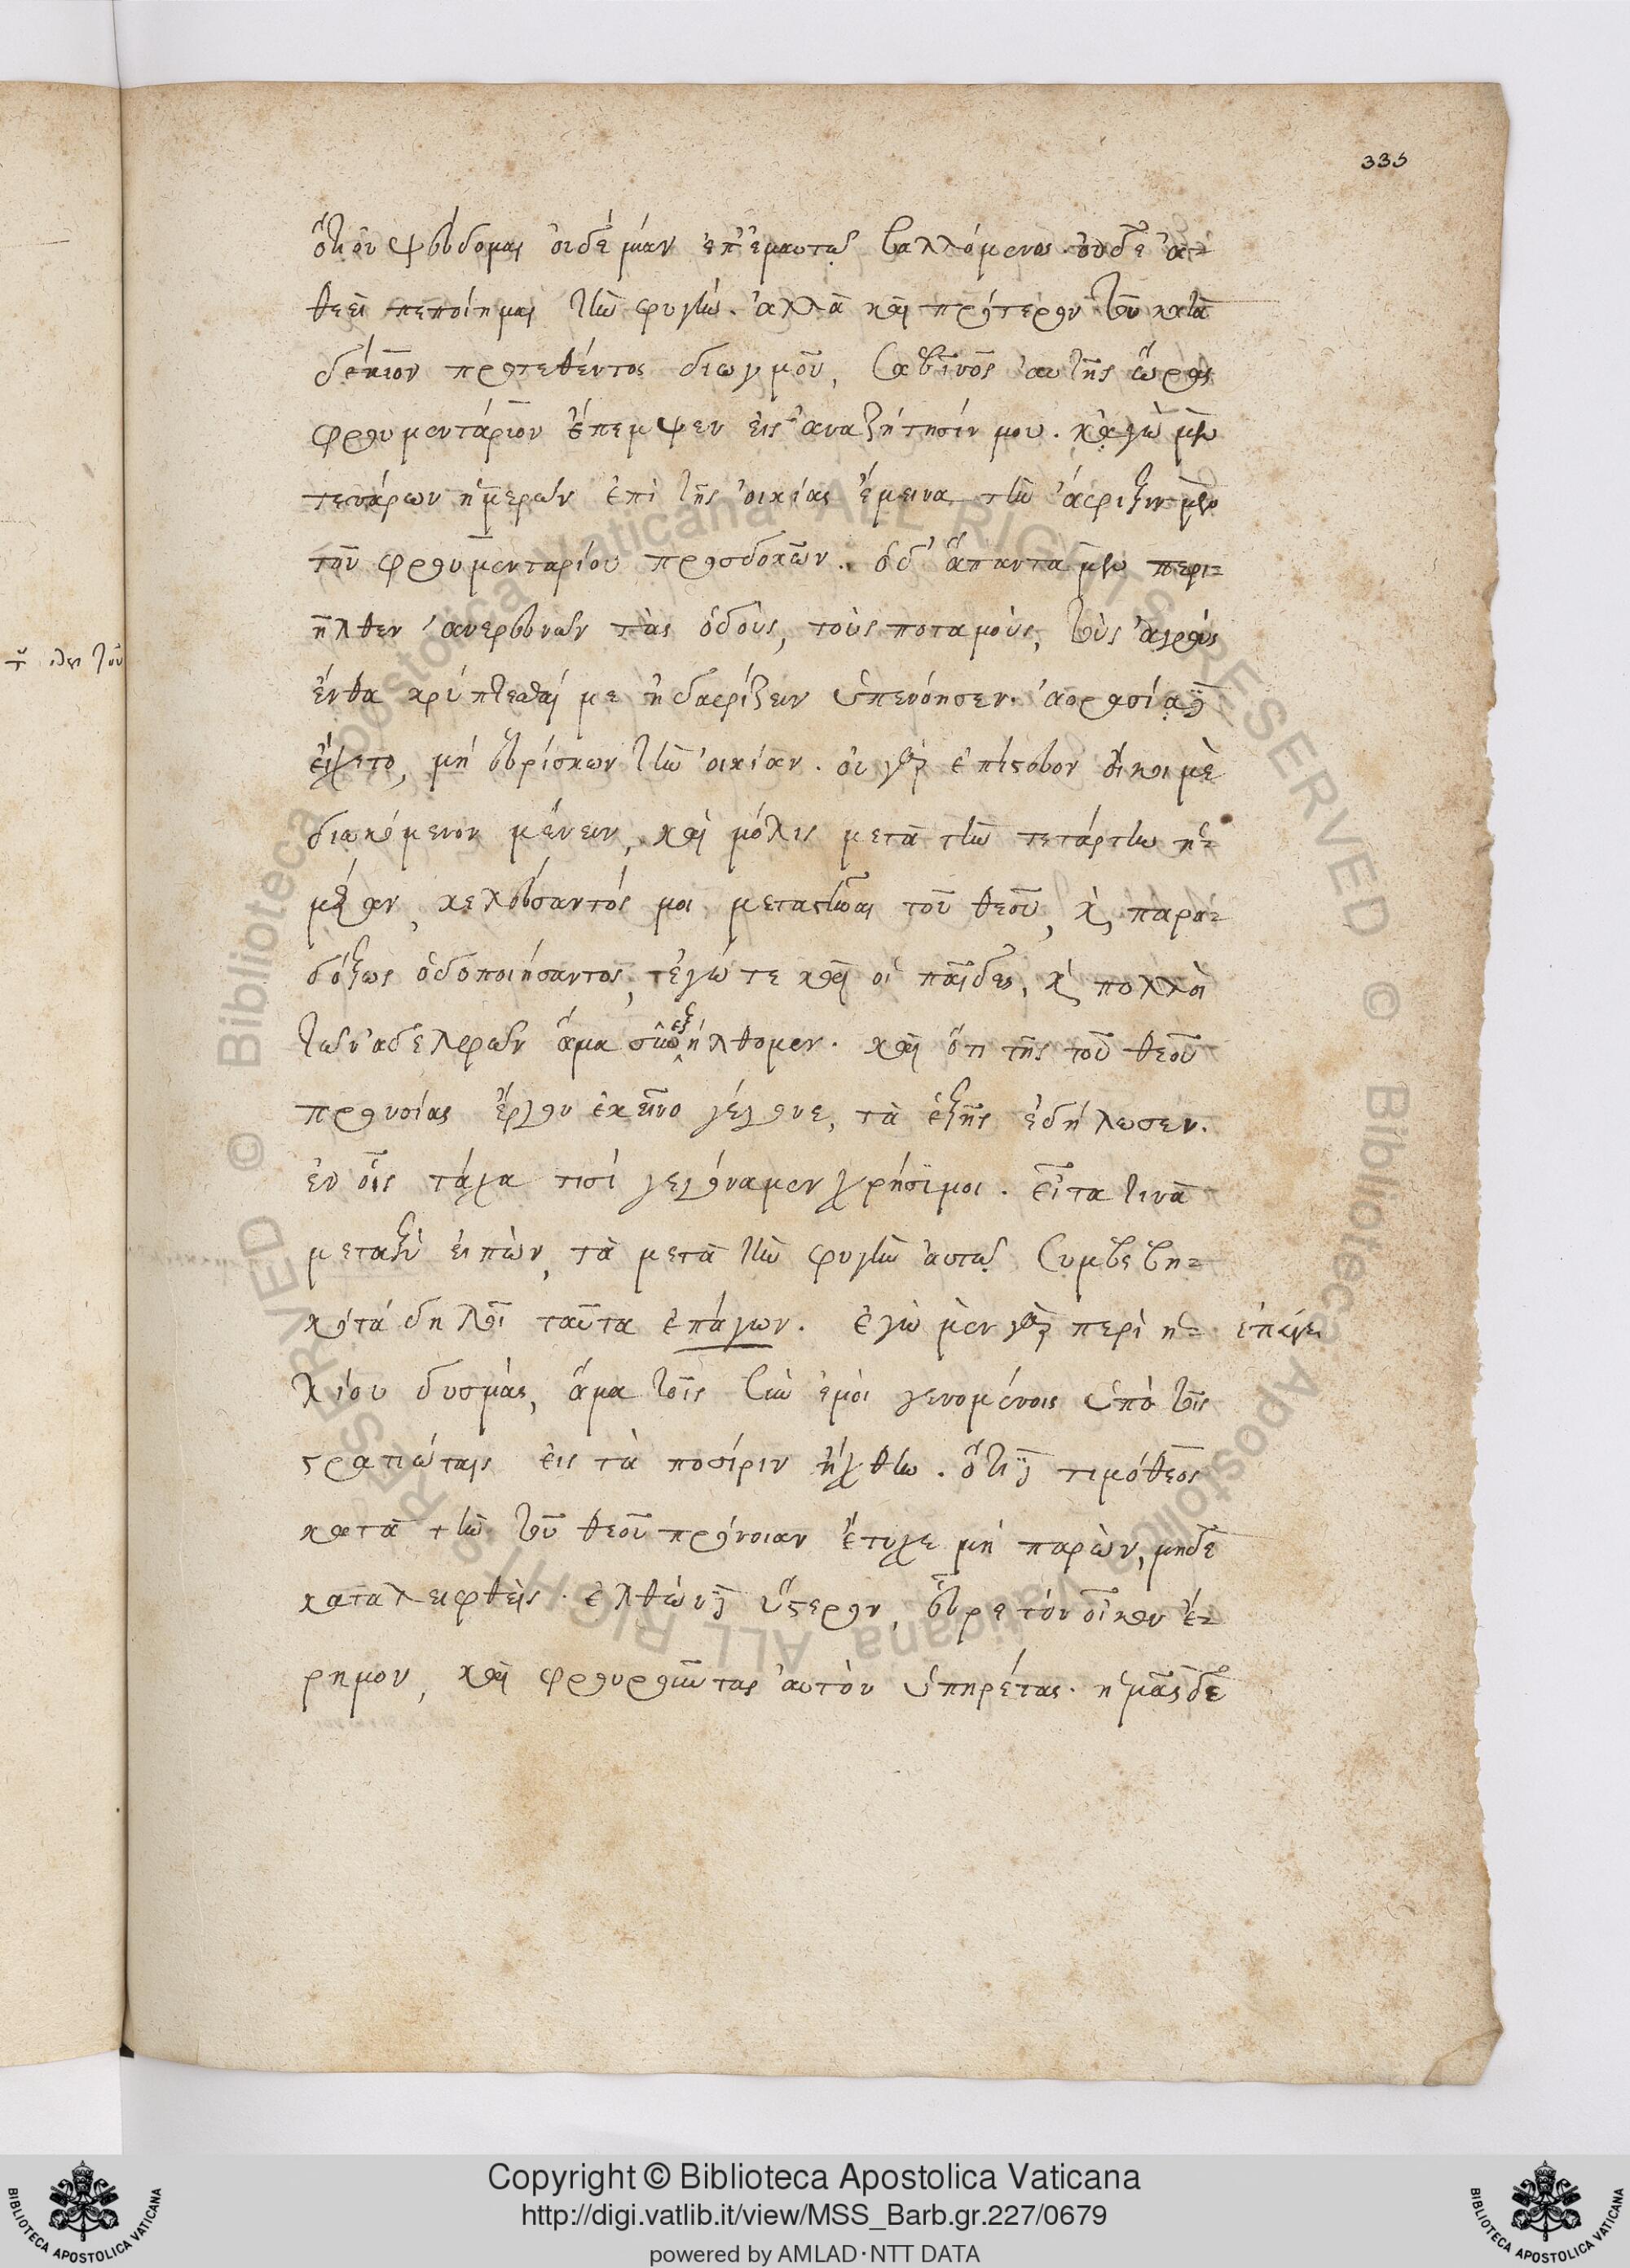 335
ὅτι οὐ ψεύδομαι οὐδεμίαν ἐπ' ἐμαυτῷ βαλλόμενος. οὐδὲ ἀ-
θεεὶ πεποίημαι τὴν φυγήν. ἀλλὰ καὶ πρότερον τοῦ κατὰ
δέκιον προτεθέντος διωγμοῦ, Σαβῖνος αὐτῆς ὥρας
φρουμεντάριον ἔπεμψεν εἰς ἀναζήτησίν μου. κἀγὼ μὲν
τεσσάρων ἡμερῶν ἐπὶ τῆς οἰκίας ἔμεινα τὴν ἄφιξιν μὲν
τοῦ φρουμενταρίου προσδοκῶν. ὁ δ' ἅπαντα μὲν περι-
ῆλθεν ἀνερευνῶν τὰς ὁδοὺς, τοὺς ποταμοὺς, τοὺς ἀγροὺς
ἔνθα κρύπτεσθαί με ἢ βαδίζειν ὑπενόησεν. ἀορασίᾳ δὲ
εἴχετο, μὴ εὑρίσκων τὴν οἰκίαν. οὐ γὰρ ἐπίστευεν οἴκοι με
διωκόμενον μένειν, καὶ μόλις μετὰ τὴν τετάρτην ἡ-
μέραν, κελεύσαντός μοι μεταστῆναι τοῦ θεοῦ, καὶ παρα-
δόξως ὁδοποιήσαντος, ἐγώ τε καὶ οἱ παῖδες, καὶ πολλοὶ
τῶν ἀδελφῶν ἅμα συνεξήλθομεν. καὶ ὅτι τῆς τοῦ θεοῦ
προνοίας ἔργον ἐκεῖνο γέγονε, τὰ ἑξῆς ἐδήλωσεν.
ἐν οἷς τάχα τισὶ γεγόναμεν χρήσιμοι. εἶτα τινὰ
μεταξὺ εἰπὼν, τὰ μετὰ τὴν φυγὴν αὐτῷ συμβεβη-
κότα δηλοῖ ταῦτα ἐπάγων. ἐγὼ μὲν γὰρ περὶ ἡ- ἐπάγει
λίου δυσμὰς, ἅμα τοῖς σὺν ἐμοὶ γενομένοις ὑπὸ τοῖς
στρατιώταις εἰς τὰ ποσίριν ἤχθην. ὅτι δὲ τιμόθεος
κατὰ τὴν τοῦ θεοῦ πρόνοιαν ἔτυχε μὴ παρὼν, μηδὲ
καταλειφθεὶς. ἐλθὼν δὲ ὕστερον, εὗρε τὸν οἶκον ἔ-
ρημον, καὶ φρουροῦντας αὐτὸν ὑπηρέτας. ἡμᾶς δὲ
© Biblioteca Apostolica Vaticana ALL RIGHTS RESERVED © Biblioteca Apostolica Vaticana ALL RIGHTS RESERVED
Copyright © Biblioteca Apostolica Vaticana
http://digi.vatlib.it/view/MSS_Barb.gr.227/0679
powered by AMLAD·NTT DATA
BIBLIOTECA APOSTOLICA VATICANA
BIBLIOTECA APOSTOLICA VATICANA